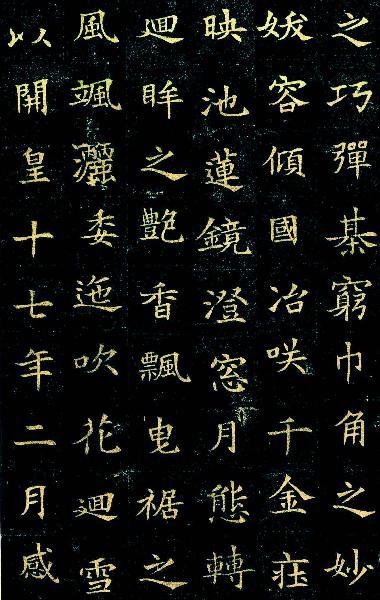 之巧彈棊窮巾角之妙
妖容傾國冶咲千金莊
映池蓮鏡澄窓月態轉
迴眸之艷香飄曳裾之
風颯灑委迤吹花迴雪
以開皇十七年二月感